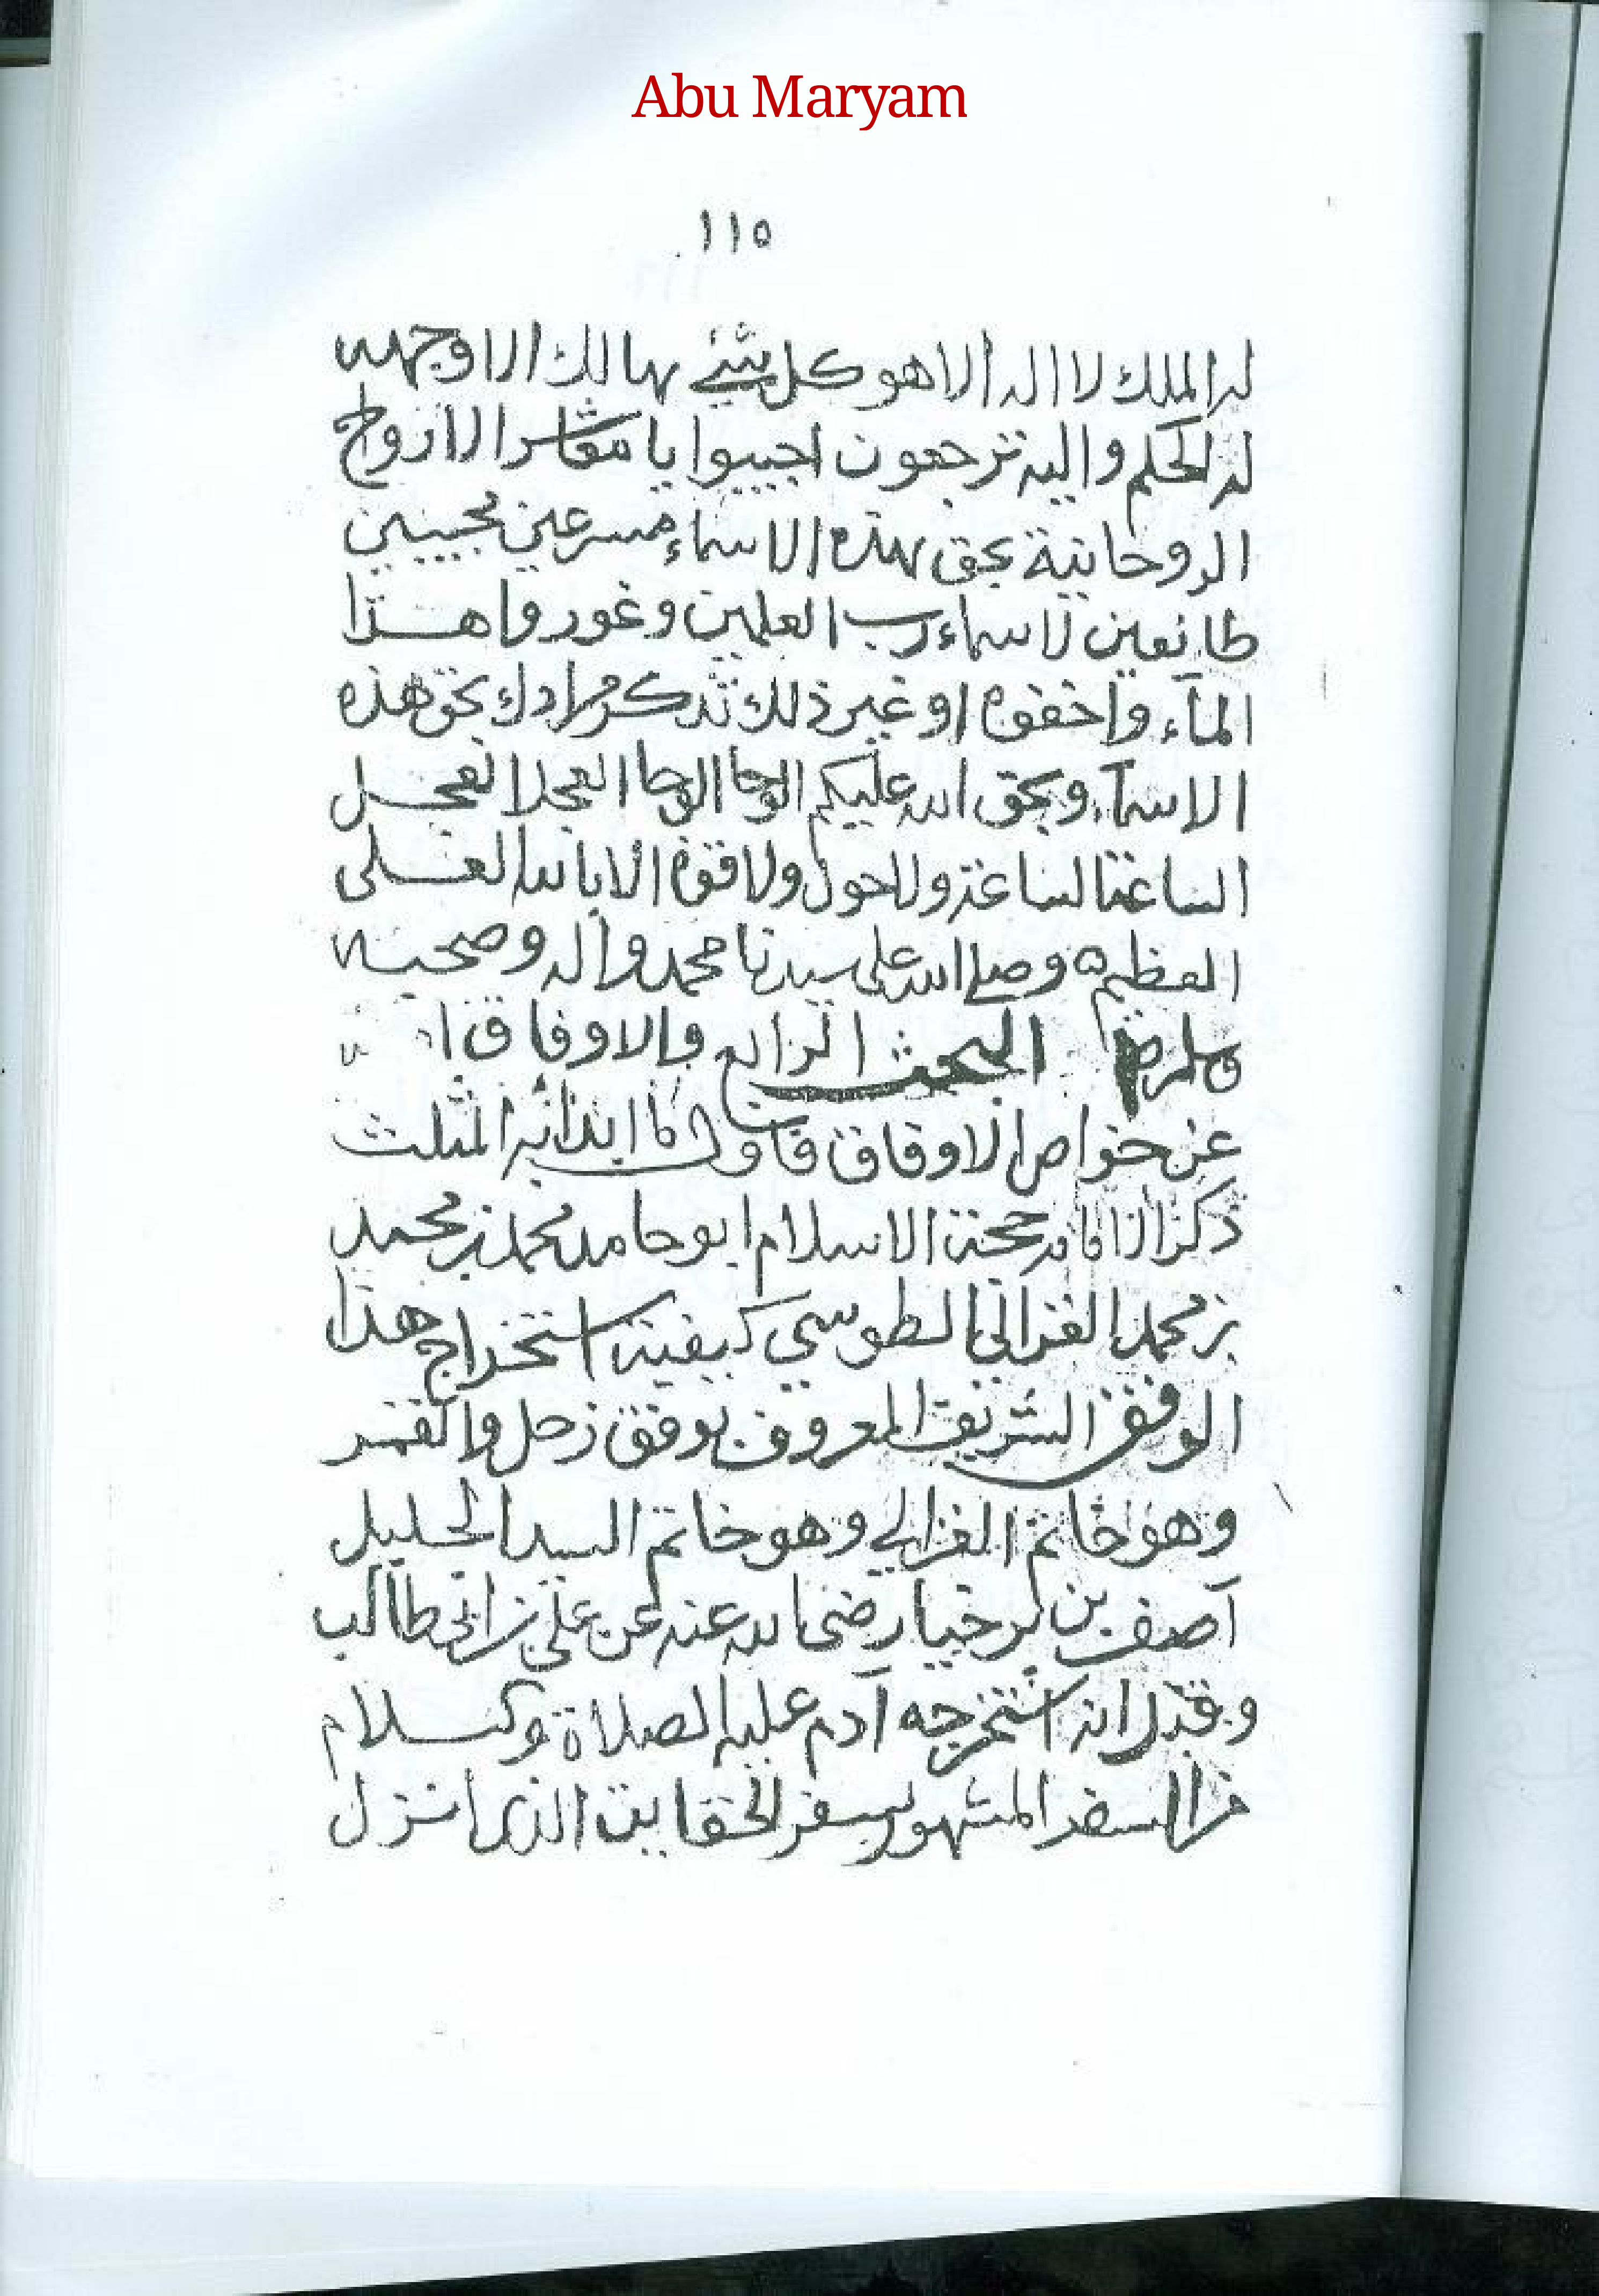 Abu Maryam
١١٥
له الملك لا اله الا هو كل شيئ هالك الا وجهه
له الحكم واليه ترجعون اجيبوا يا معاشر الارواح
الروحانية بحق هذه الاسماء مسرعين مجيبين
طائعين لاسماء رب العلمين وغوروا هذا
المآء واخفوه او غير ذلك تذكر مرادك بحق هذه
الاسمآء وبحق الله عليكم الوحا الوحا العجل العجل
الساعة الساعة ولا حول ولا قوة الا بالله العلى
العظيم ٥ وصلى الله على سيدنا محمد واله وصحبه
وسلم البحث الرابع والاوفاق
عن خواص الاوفاق فاول ما ابدا به المثلث
ذكر الامام حجة الاسلام ابو حامد محمد بن محمد
بن محمد الغزالي الطوسي كيفية استخراج هذا
الوفق الشريف المعروف بوفق زحل والقمر
وهو خاتم الغزالي وهو خاتم السيد الجليل
آصف بن برخيا رضى الله عنه عن على بن ابى طالب
وقيل انه استخرجه آدم عليه الصلاة والسلام
من السفر المشهور بسفر الخفايا الذى انزل